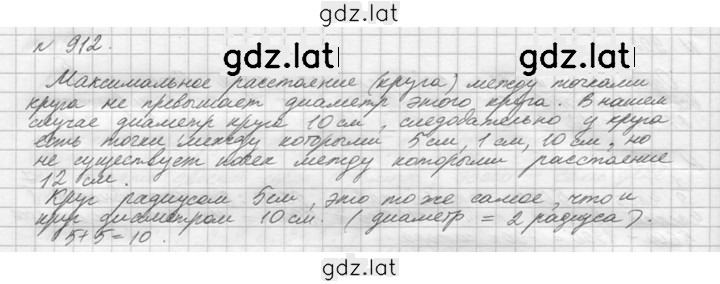 gdz.lat
№ 912.
gdz.lat
gdz.lat
Максимальное расстояние (круга) между точками
круга не превышает диаметр этого круга. В нашем
случае диаметр круга 10 см, следовательно у круга
есть точки, между которыми 5 см, 1 см, 10 см, но
не существует между которыми расстояние
12 см.
Круг радиусом 5 см, это то же самое, что и
круг диаметром 10 см. (диаметр = 2 радиуса).
5+5=10.
gdz.lat